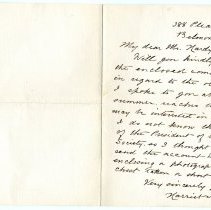 388 Plea
Belmon
My dear Mr. Hardy
Will you kindly
the enclosed com
in regard to the
I spoke to you
summer
may be interested in
I do not know the
of the President of
Society, so I thought
send the account
enclosing a photograph
chest taken a short
Very sincerely
Harriet